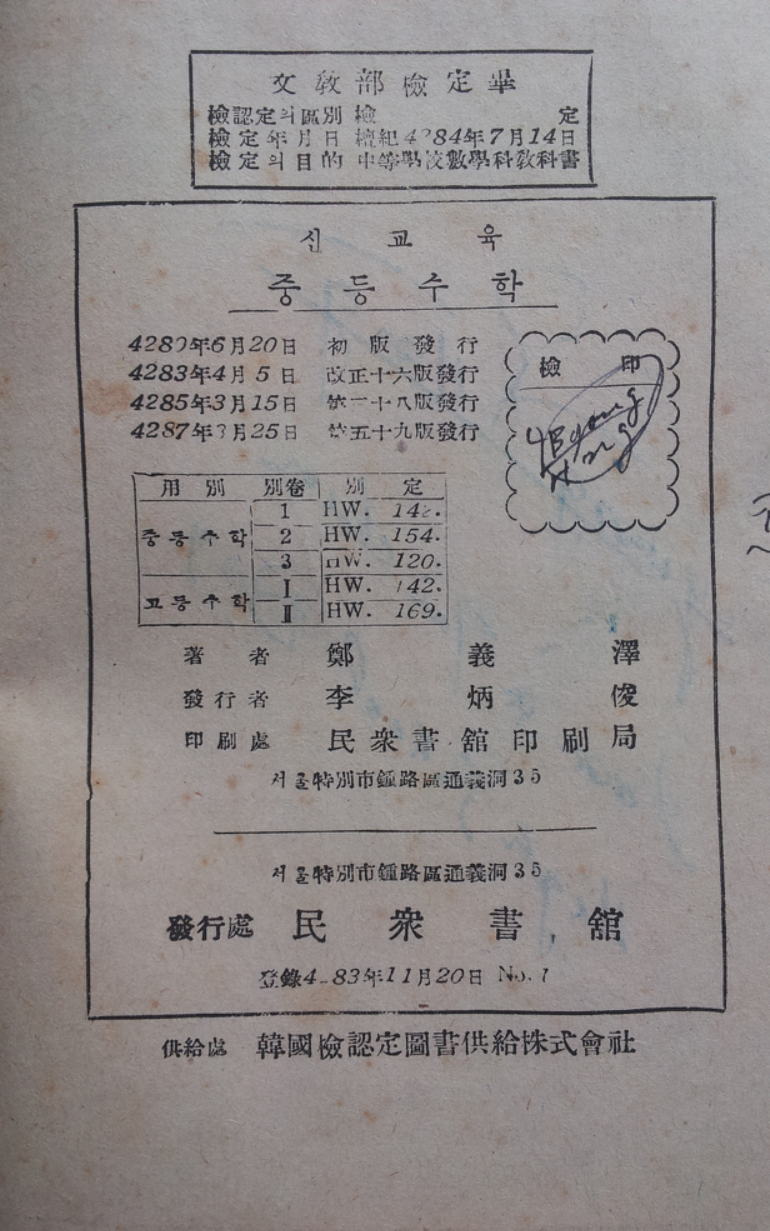 文敎部檢定畢
檢認定의區別 檢 定
檢定年月日 檀紀4284年7月14日
檢定의目的 中等學校數學科敎科書
신교육
중등수학
4280年6月20日 初版發行
4283年4月5日 改正十六版發行
4285年3月15日 第二十八版發行
4287年3月25日 第五十九版發行
檢印
用別 別卷 別定
1 HW. 142.
중등수학 2 HW. 154.
3 HW. 120.
고등수학 Ⅰ HW. 142.
Ⅱ HW. 169.
著者 鄭義澤
發行者 李炳俊
印刷處 民衆書舘印刷局
서울特別市鍾路區通義洞35
서울特別市鍾路區通義洞35
發行處 民衆書舘
登錄4283年11月20日 No.1
供給處 韓國檢認定圖書供給株式會社